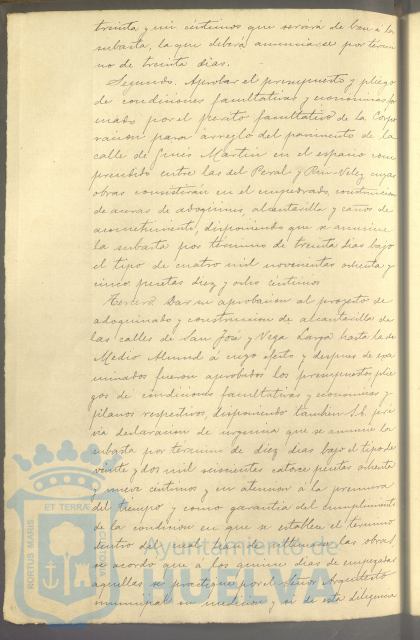 treinta y un céntimos que servirá de base á la
subasta, la que deberá anunciarse por térmi
no de treinta dias.
Segundo. Aprobar el presupuesto y pliego
de condiciones facultativas y economicas for
mado por el perito facultativo de la Corpo
racion para arreglo del pavimento de la
calle de Ginés Martin en el espacio com
prendido entre las del Peral y Rui-Velez cuyas
obras consistirán en el empedrado, construccion
de aceras de adoquines, alcantarilla y caños de
acometimiento, disponiendo que se anuncie
la subasta por término de treinta dias bajo
el tipo de cuatro mil novecientas ochenta y
cinco pesetas diez y ocho céntimos
Tercero. Dar su aprobacion al proyecto de
adoquinado y construccion de alcantarilla de
las calles de San José y Vega Larga hasta la de
Medio Almud á cuyo efecto y despues de exa
minados fueron aprobados los presupuestos, plie
gos de condiciones facultativas y economicas y
planos respectivos, disponiendo tambien S.E. pre
via declaracion de urgencia que se anuncie la
subasta por término de diez dias bajo el tipo de
veinte y dos mil seiscientas catorce pesetas ochenta
y nueve céntimos y en atencion á la premura
del tiempo y como garantia del cumplimiento
de la condicion en que se establece el término
dentro del cual han de ultimarse las obras,
se acordó que á los quince dias de empezadas
aquellas se practique por el Señor Arquitecto
municipal una medicion y si de esta diligencia
PORTUS MARIS
ET TERRAE
CUSTODIA
Ayuntamiento de
HUELVA